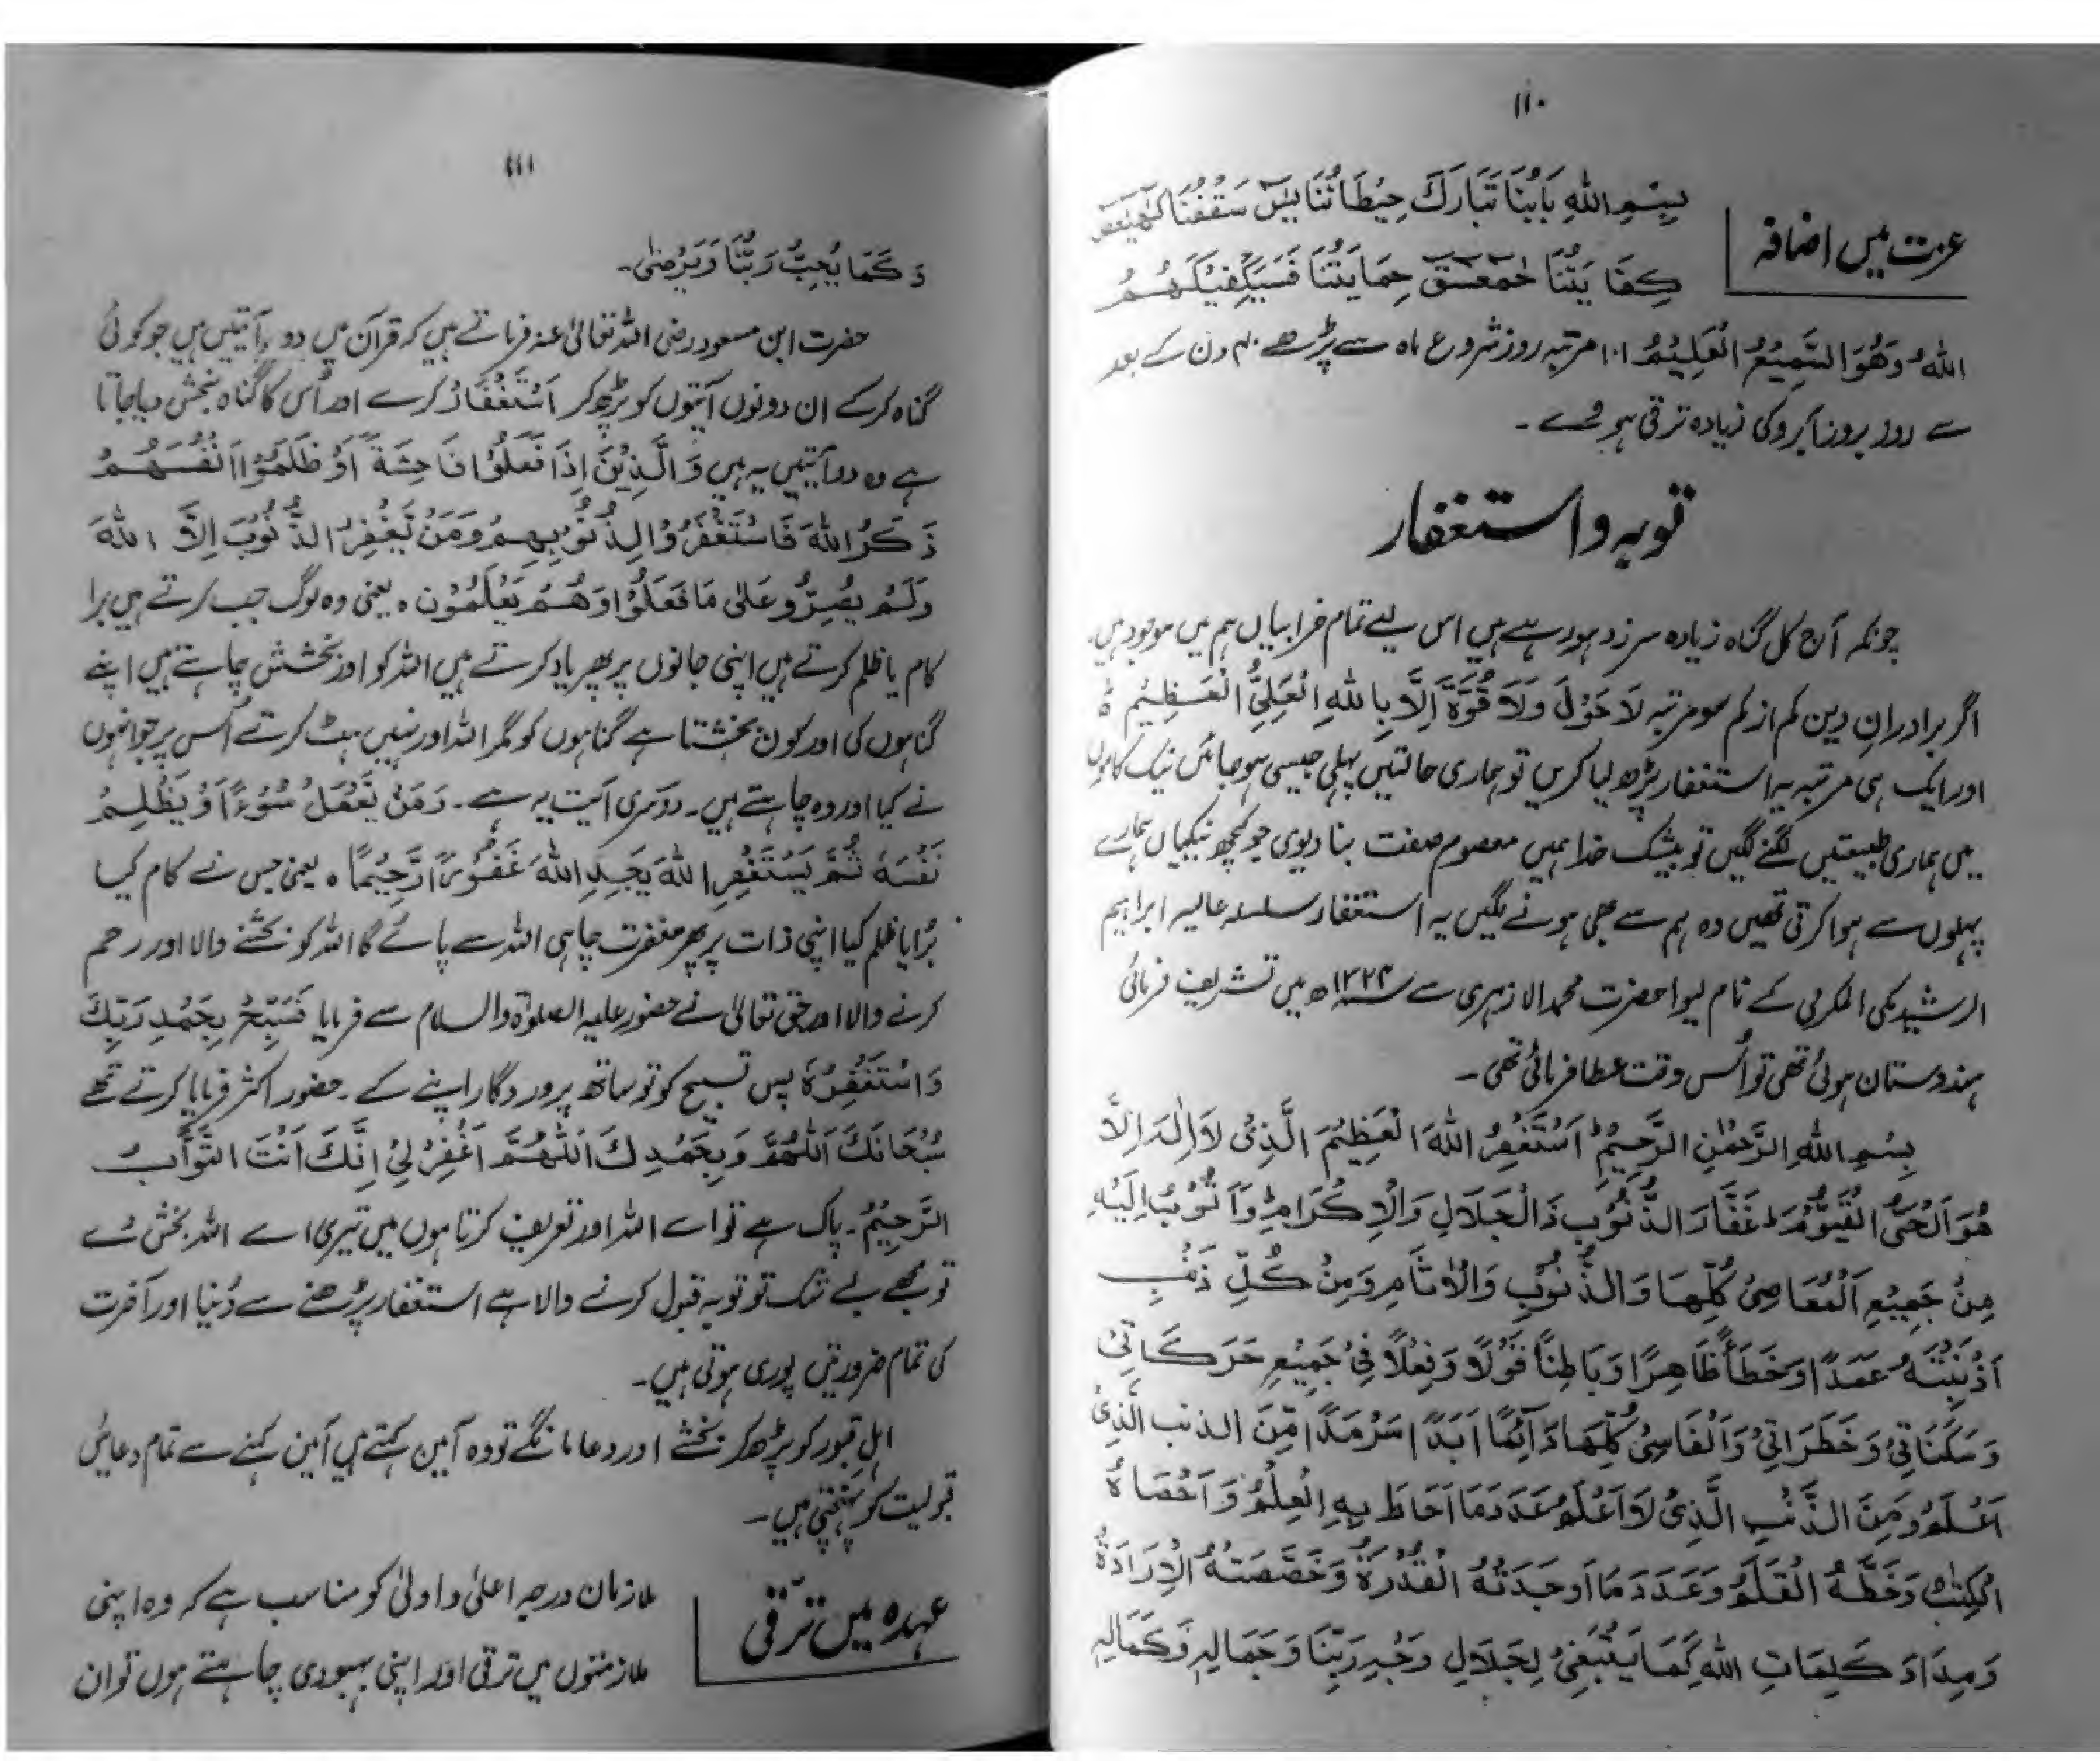 ۱۱۰
عزت میں اضافہ
بِسْمِ اللهِ بَابُنَا تَبَارَكَ حِيْطَانُنَا يٰسٓ سَقْفُنَا كٓهٰيٰعٓصٓ
كِفَايَتُنَا حٰمٓعٓسٓقٓ حِمَايَتُنَا فَسَيَكْفِيْكَهُمُ
اللهُ وَهُوَ السَّمِيْعُ الْعَلِيْمُ ۱۰۱ مرتبہ روز شروع ماہ سے پڑھے ۴۰ دن کے بعد
سے روز بروز آبرو کی زیادہ ترقی ہووے ۔
توبہ و استغفار
چونکہ آج کل گناہ زیادہ سرزد ہو رہے ہیں اس لیے تمام خرابیاں ہم میں موجود ہیں۔
اگر برادران دین کم از کم سو مرتبہ لَاحَوْلَ وَلَا قُوَّةَ اِلَّا بِاللهِ الْعَلِيِّ الْعَظِيْمِ ہ
اور ایک ہی مرتبہ یہ استغفار پڑھ لیا کریں تو ہماری حالتیں پہلی جیسی ہو جائیں نیک کاموں
میں ہماری طبیعتیں لگنے لگیں تو بیشک خدا ہمیں معصوم صفت بنا دیوی جو کچھ نیکیاں ہمارے
پہلوں سے ہوا کرتی تھیں وہ ہم سے بھی ہونے لگیں یہ استغفار سلسلہ عالیہ ابراہیم
الرشید مکی المکربی کے نام لیوا حضرت محمد الازہری سے سنہ ۱۳۲۴ھ میں تشریف فرمائی
ہندوستان ہوئی تھی تو اُس وقت عطا فرمائی تھی ۔
بِسْمِ اللهِ الرَّحْمٰنِ الرَّحِيْمِ اَسْتَغْفِرُ اللهَ الْعَظِيْمَ الَّذِىْ لَا اِلٰهَ اِلَّا
هُوَ الْحَىُّ الْقَيُّوْمَ غَفَّارَ الذُّنُوْبِ ذَالْجَلَالِ وَالْاِكْرَامِ وَاَتُوْبُ اِلَيْهِ
مِنْ جَمِيْعِ الْمَعَاصِىْ كُلِّهَا وَالذُّنُوْبِ وَالْاٰثَامِ وَمِنْ كُلِّ ذَنْبٍ
اَذْنَبْتُهٗ عَمَدًا وَخَطَأً ظَاهِرًا وَبَاطِنًا قَوْلًا وَفِعْلًا فِىْ جَمِيْعِ حَرَكَاتِىْ
وَسَكَنَاتِىْ وَخَطَرَاتِىْ وَاَنْفَاسِىْ كُلِّهَا دَآئِمًا اَبَدًا سَرْمَدًا مِّنَ الذنب الَّذِىْ
اَعْلَمُ وَمِنَ الذَّنْبِ الَّذِىْ لَا اَعْلَمُ عَدَدَ مَا اَحَاطَ بِهِ الْعِلْمُ وَاَحْصَاهُ
الْكِتٰبُ وَخَطَّهُ الْقَلَمُ وَعَدَدَ مَا اَوْجَدَتْهُ الْقُدْرَةُ وَخَصَّصَتْهُ الْاِرَادَةُ
وَمِدَادَ كَلِمَاتِ اللهِ كَمَا يَنْبَغِىْ لِجَلَالِ وَجْهِ رَبِّنَا وَجَمَالِهٖ وَكَمَالِهٖ
۱۱۱
وَكَمَا يُحِبُّ رَبُّنَا وَيَرْضٰى۔
حضرت ابن مسعود رضی اللہ تعالیٰ عنہ فرماتے ہیں کہ قرآن میں دو آیتیں ہیں جو کوئی
گناہ کر کے ان دونوں آیتوں کو پڑھ کر اَسْتَغْفَارْ کرے اور اُس کا گناہ بخش دیا جاتا
ہے وہ دو آیتیں یہ ہیں وَالَّذِيْنَ اِذَا فَعَلُوْا فَاحِشَةً اَوْ ظَلَمُوْا اَنْفُسَهُمْ
ذَكَرُ اللهَ فَاسْتَغْفَرُوْا لِذُنُوْبِهِمْ وَمَنْ يَّغْفِرُ الذُّنُوْبَ اِلَّا اللهَ
وَلَمْ يُصِرُّوْ عَلٰى مَا فَعَلُوْا وَهُمْ يَعْلَمُوْن ہ یعنی وہ لوگ جب کرتے ہیں برا
کام یا ظلم کرتے ہیں اپنی جانوں پر پھر یاد کرتے ہیں اللہ کو اور بخشش چاہتے ہیں اپنے
گناہوں کی اور کون بخشتا ہے گناہوں کو مگر اللہ اور نہیں ہٹ کرتے اُس پر جو انہوں
نے کیا اور وہ چاہتے ہیں ۔ دوسری آیت یہ ہے ۔ وَمَنْ يَّعْمَلْ سُوْءًا اَوْ يَظْلِمْ
نَفْسَهٗ ثُمَّ يَسْتَغْفِرِ اللهَ يَجِدِ اللهَ غَفُوْرًا رَّحِيْمًا ہ یعنی جس نے کام کیا
بُرا یا ظلم کیا اپنی ذات پر پھر مغفرت چاہی اللہ سے پائے گا اللہ کو بخشنے والا اور رحم
کرنے والا اور حق تعالیٰ نے حضور علیہ الصلوٰۃ والسلام سے فرمایا فَسَبِّحْ بِحَمْدِ رَبِّكَ
وَاسْتَغْفِرْهُ پس تسبیح کو تو ساتھ پروردگار اپنے کے ۔ حضور اکثر فرمایا کرتے تھے
سُبْحَانَكَ اَللّٰهُمَّ وَبِحَمْدِكَ اَللّٰهُمَّ اغْفِرْلِىْ اِنَّكَ اَنْتَ التَّوَّابُ
الرَّحِيْمُ ۔ پاک ہے تو اے اللہ اور تعریف کرتا ہوں میں تیری اے اللہ بخش دے
تو مجھے بے شک تو توبہ قبول کرنے والا ہے استغفار پڑھنے سے دُنیا اور آخرت
کی تمام ضرورتیں پوری ہوتی ہیں۔
اہل قبور کو پڑھ کر بخشے اور دعا مانگے تو وہ آمین کہتے ہیں آمین کہنے سے تمام دعائیں
قبولیت کو پہنچتی ہیں ۔
عہدہ میں ترقی
ملازمان درجہ اعلیٰ و اولیٰ کو مناسب ہے کہ وہ اپنی
ملازمتوں میں ترقی اور اپنی بہبودی چاہتے ہوں تو ان